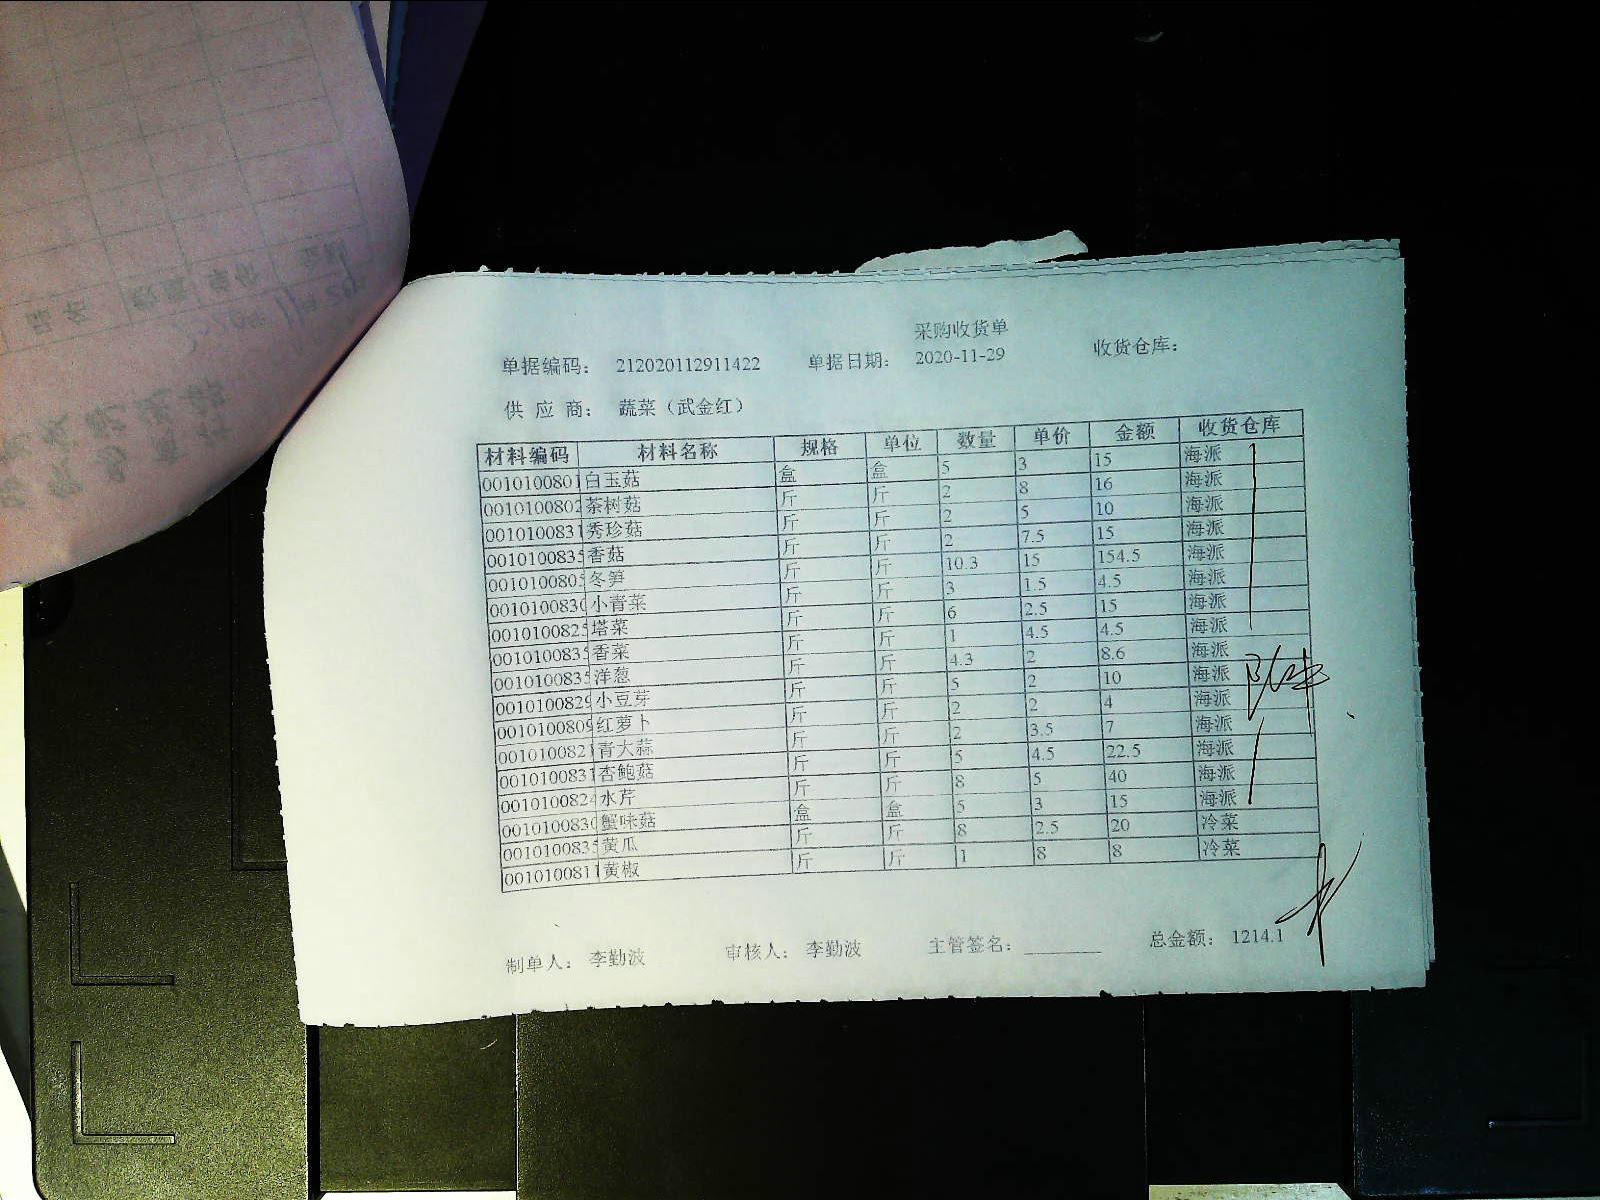 采购收货单
单据编码： 212020112911422 单据日期： 2020-11-29 收货仓库：
供 应 商： 蔬菜（武金红）
材料编码 材料名称 规格 单位 数量 单价 金额 收货仓库
0010100801 白玉菇 盒 盒 5 3 15 海派
0010100802 茶树菇 斤 斤 2 8 16 海派
0010100831 秀珍菇 斤 斤 2 5 10 海派
0010100835 香菇 斤 斤 2 7.5 15 海派
0010100805 冬笋 斤 斤 10.3 15 154.5 海派
001010083 小青菜 斤 斤 3 1.5 4.5 海派
0010100825 塔菜 斤 斤 6 2.5 15 海派
0010100835 香菜 斤 斤 1 4.5 4.5 海派
0010100835 洋葱 斤 斤 4.3 2 8.6 海派
0010100829 小豆芽 斤 斤 5 2 10 海派
0010100809 红萝卜 斤 斤 2 2 4 海派
0010100821 青大蒜 斤 斤 2 3.5 7 海派
0010100831 杏鲍菇 斤 斤 5 4.5 22.5 海派
0010100824 水芹 斤 斤 8 5 40 海派
001010083 蟹味菇 盒 盒 5 3 15 海派
0010100835 黄瓜 斤 斤 8 2.5 20 冷菜
0010100811 黄椒 斤 斤 1 8 8 冷菜
制单人： 李勤波 审核人： 李勤波 主管签名： 总金额： 1214.1